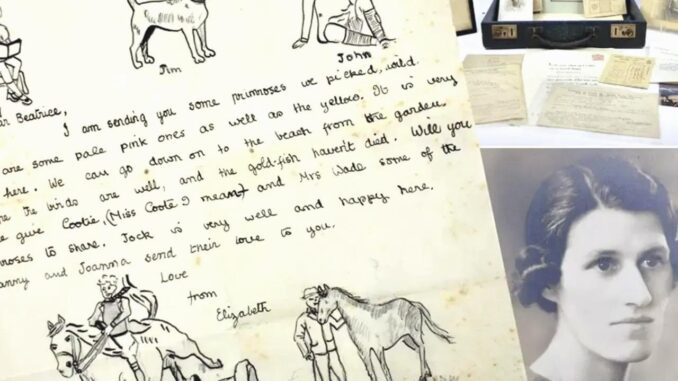 Jim
John
ar Beatrice,
I am sending you some primroses we picked, wild.
are some pale pink ones as well as the yellow. It is very
here. We can go down on to the beach from the garden.
birds are well, and the gold-fish havent died. Will you
e give Cootie, (Miss Coote I meant) and Mrs Wade some of the
mroses to share. Jock is very well and happy here.
anny and Joanna send their love to you.
Love
from
Elizabeth